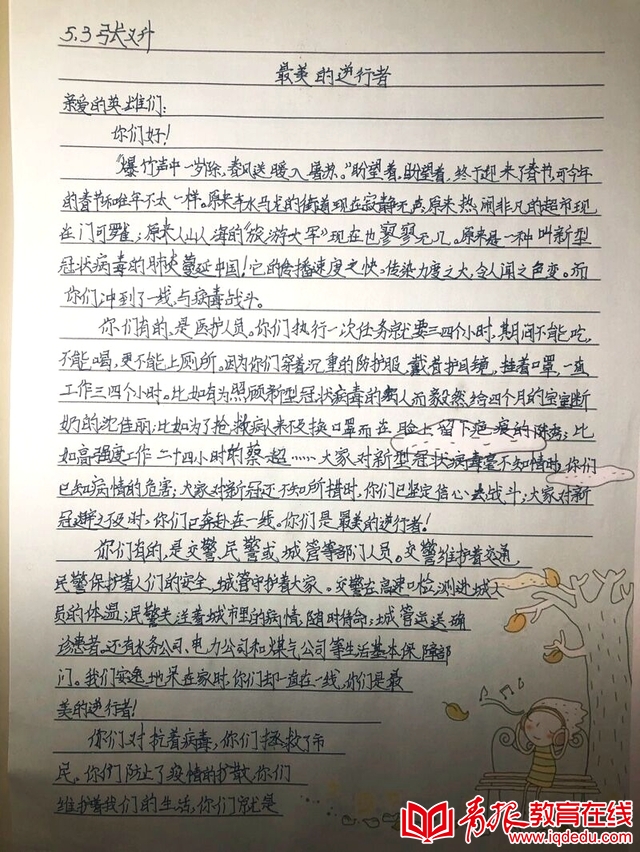 5.3 张义升
最美的逆行者
亲爱的英雄们:
你们好!
“爆竹声中一岁除,春风送暖入屠苏。”盼望着,盼望着,终于迎来了春节,可今年
的春节和往年不太一样。原来车水马龙的街道现在寂静无声;原来热闹非凡的超市现
在门可罗雀;原来人山人海的“旅游大军”现在也寥寥无几。原来是一种叫新型
冠状病毒的肺炎蔓延中国!它的传播速度之快,传染力度之大,令人闻之色变。而
你们冲到了一线,与病毒战斗。
你们有的,是医护人员。你们执行一次任务就要三四个小时,其间不能吃,
不能喝,更不能上厕所。因为你们穿着沉重的防护服,戴着护目镜,挂着口罩,一直
工作三四个小时。比如有为照顾新型冠状病毒的病人而毅然给四个月的宝宝断
奶的沈佳丽;比如为了抢救病人来不及换口罩而在脸上留下疤痕的陈秀;比
如高强度工作二十四小时的蔡超……大家对新型冠状病毒毫不知情时,你们
已知病情的危害;大家对新冠还不知所措时,你们已坚定信心去战斗;大家对新
冠避之不及时,你们已奔赴在一线。你们是最美的逆行者!
你们有的,是交警、民警或城管等部门人员。交警维护着交通,
民警保护着人们的安全,城管守护着大家。交警在高速口检测进城人
员的体温;民警关注着城市里的病情,随时待命;城管运送确
诊患者。还有水务公司、电力公司和煤气公司等生活基本保障部
门。我们安逸地呆在家时,你们却一直在一线,你们是最
美的逆行者!
你们对抗着病毒,你们拯救了市
民。你们防止了疫情的扩散,你们
维护着我们的生活,你们就是
青报教育在线
www.iqdedu.com